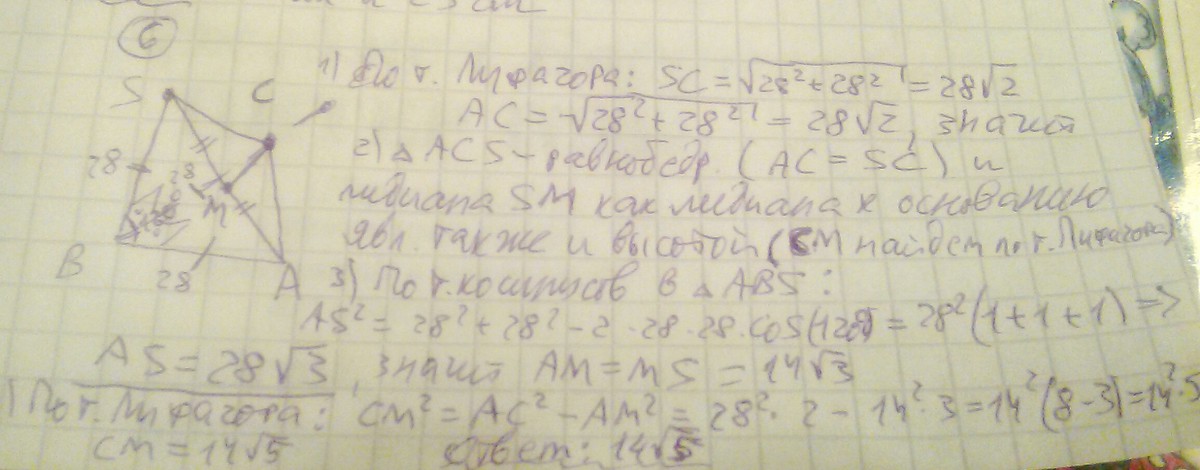 6
S C
28
28
M
B 28 A
1) По т. Пифагора: SC = √28² + 28² = 28√2
AC = √28² + 28² = 28√2, значит
2) △ ACS - равнобедр. (AC = SC) и
медиана SM как медиана к основанию
явл. также и высотой (CM найдем по т. Пифагора)
3) По т. косинусов в △ ABS:
AS² = 28² + 28² - 2 · 28 · 28 · cos(120) = 28² (1 + 1 + 1) =>
AS = 28√3, значит AM = MS = 14√3
) По т. Пифагора: CM² = AC² - AM² = 28² · 2 - 14² · 3 = 14² (8 - 3) = 14² · 5
CM = 14√5 Ответ: 14√5